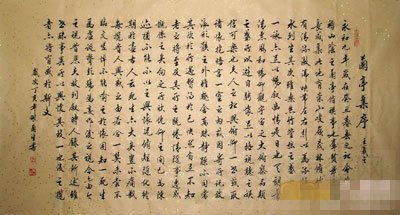 蘭亭集序 王羲之
永和九年歲在癸丑暮春之初會于會
稽山陰之蘭亭脩禊事也羣賢畢至少
長咸集此地有崇山峻領茂林脩竹又
有清流激湍映帶左右引以為流觴曲
水列坐其次雖無絲竹管弦之盛一觴
一詠亦足以暢敘幽情是日也天朗氣
清惠風和暢仰觀宇宙之大俯察品類
之盛所以遊目騁懷足以極視聽之娛
信可樂也夫人之相與俯仰一世或取
諸懷抱悟言一室之內或因寄所託放
浪形骸之外雖趣舍萬殊靜躁不同當
其欣於所遇暫得於己快然自足不知
老之將至及其所之既倦情隨事遷感
慨係之矣向之所欣俛仰之間已為陳
迹猶不能不以之興懷況脩短隨化終
期於盡古人云死生亦大矣豈不痛哉
每覽昔人興感之由若合一契未嘗不
臨文嗟悼不能喻之於懷固知一死生
為虛誕齊彭殤為妄作後之視今亦由今
之視昔悲夫故列敘時人錄其所述雖
世殊事異所以興懷其致一也後之覽
者亦將有感於斯文
歲次丁亥年